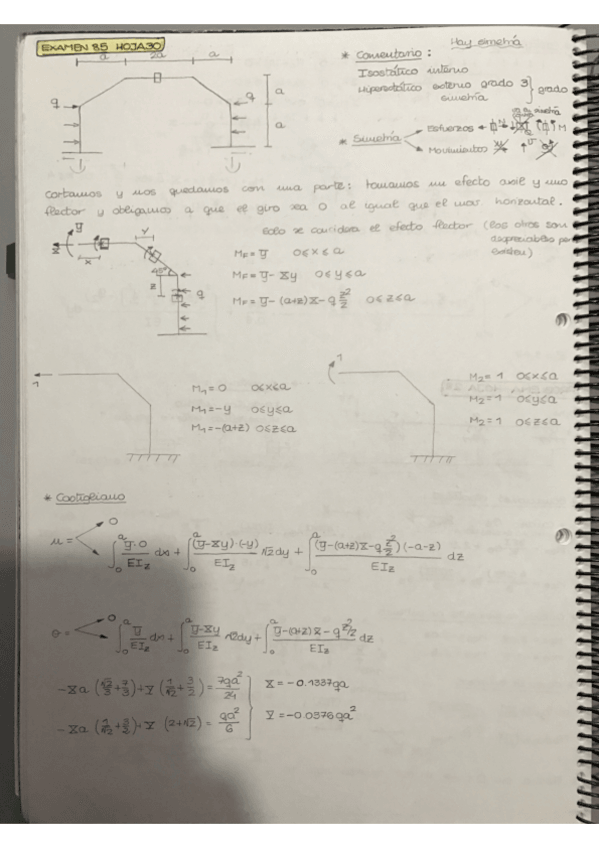 EXAMEN 85 HOJA30
Hay simetría
a 2a a
* Comentario:
Isostático interno
Hiperestático externo grado 3 } grado
simetría
q q a
a
* Simetría
Esfuerzos
Movimientos
Cortamos y nos quedamos con una parte: tomamos un efecto axil y uno
flector y obligamos a que el giro sea 0 al igual que el mov. horizontal.
Solo se considera el efecto flector (los otros son
despreciables por
existen)
MF = Y 0≤x≤a
MF = Y - Xy 0≤y≤a
MF = Y - (a+z)X - q z²/2 0≤z≤a
x y 45° z q
1
M1 = 0 0≤x≤a
M1 = -y 0≤y≤a
M1 = -(a+z) 0≤z≤a
1
M2 = 1 0≤x≤a
M2 = 1 0≤y≤a
M2 = 1 0≤z≤a
* Castigliano
0
μ = ∫₀ᵃ Y·0/EIz dx + ∫₀ᵃ (Y-Xy)·(-y)/EIz √2dy + ∫₀ᵃ (Y-(a+z)X-q z²/2)(-a-z)/EIz dz
0
θ = ∫₀ᵃ Y/EIz dx + ∫₀ᵃ Y-Xy/EIz √2dy + ∫₀ᵃ Y-(a+z)X-q z²/2/EIz dz
-Xa (√2/3+7/3)+Y (1/√2+3/2) = 7qa²/24 X = -0.1337qa
-Xa (1/√2+3/2)+Y (2+√2) = qa²/6 Y = -0.0376qa²